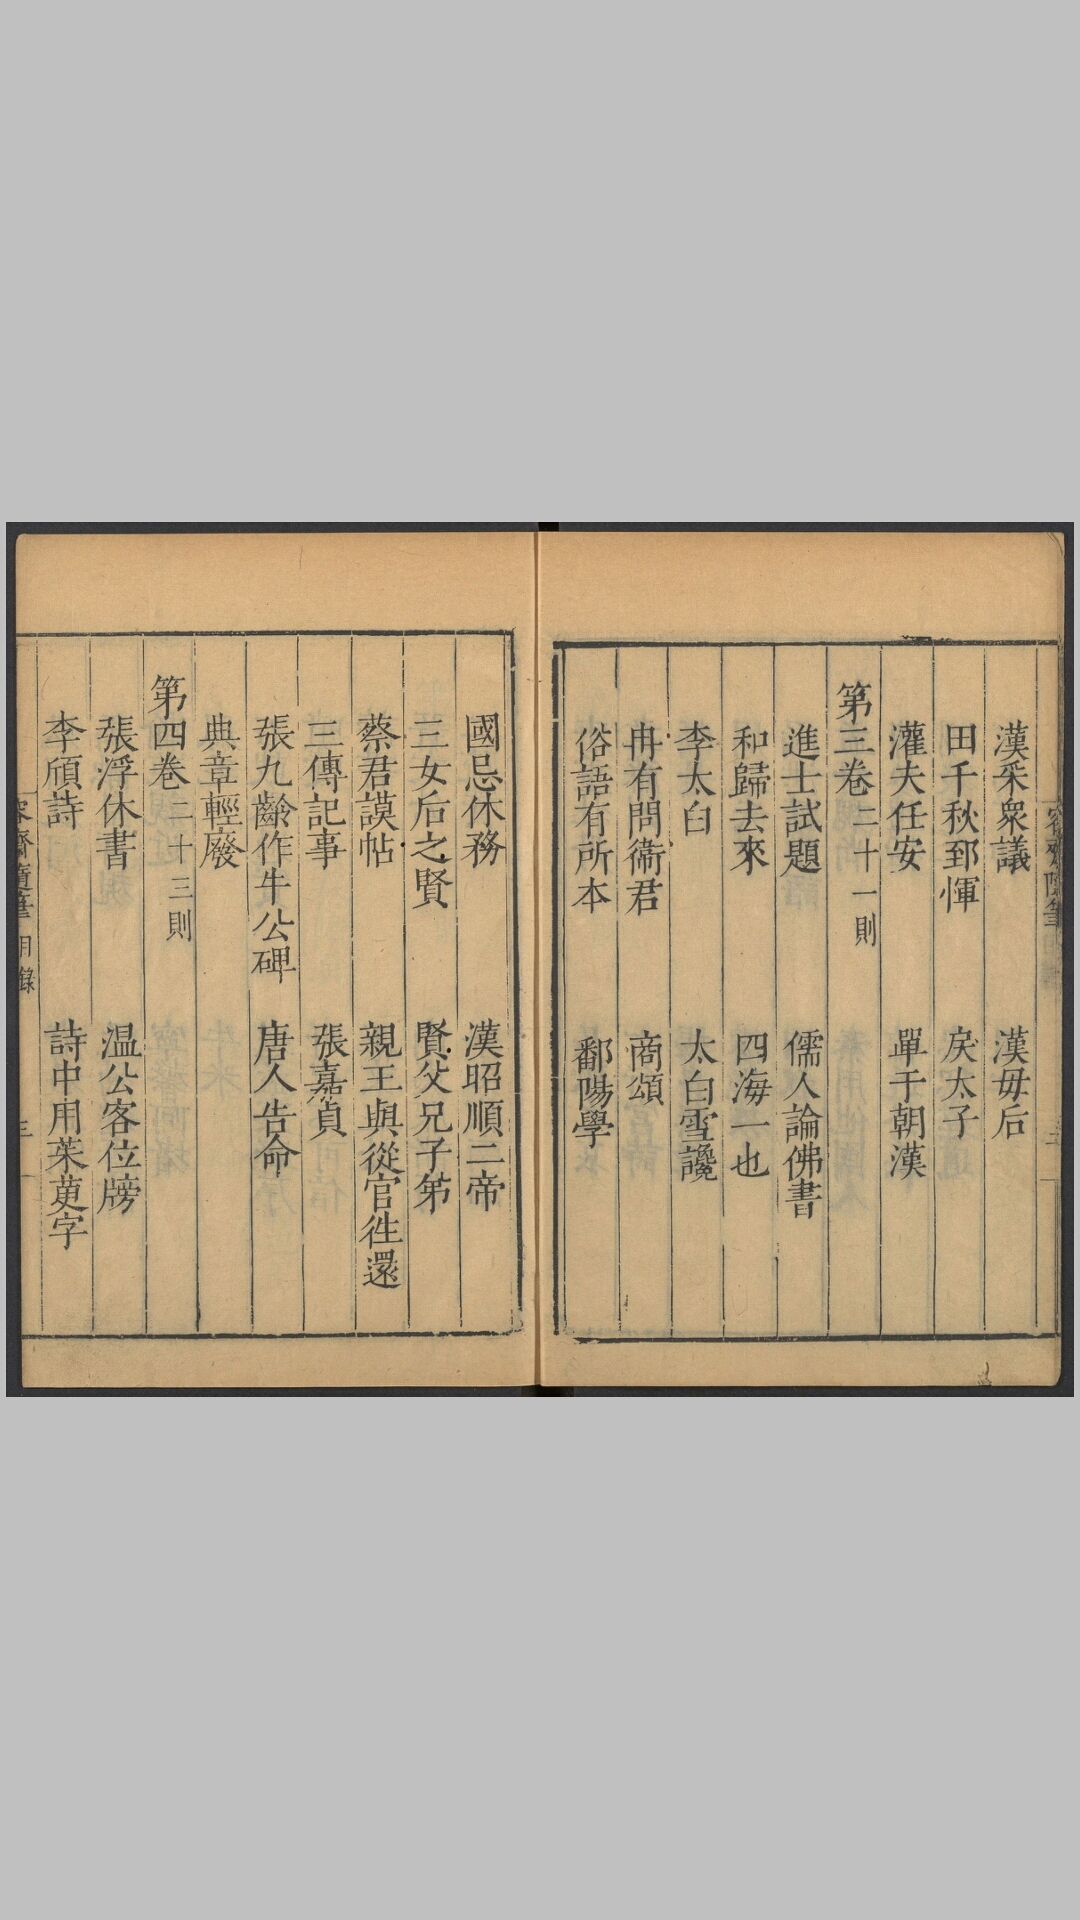 漢采衆議 漢毋后
田千秋郅惲 戾太子
灌夫任安 單于朝漢
第三卷二十一則
進士試題 儒人論佛書
和歸去來 四海一也
李太白 太白雪讒
冉有問衞君 商頌
俗語有所本 鄱陽學
國忌休務 漢昭順二帝
三女后之賢 賢父兄子弟
蔡君謨帖 親王與從官徃還
三傳記事 張嘉貞
張九齡作牛公碑 唐人告命
典章輕廢
第四卷二十三則
張浮休書 温公客位牓
李頎詩 詩中用茱萸字
容齋隨筆 目錄 三